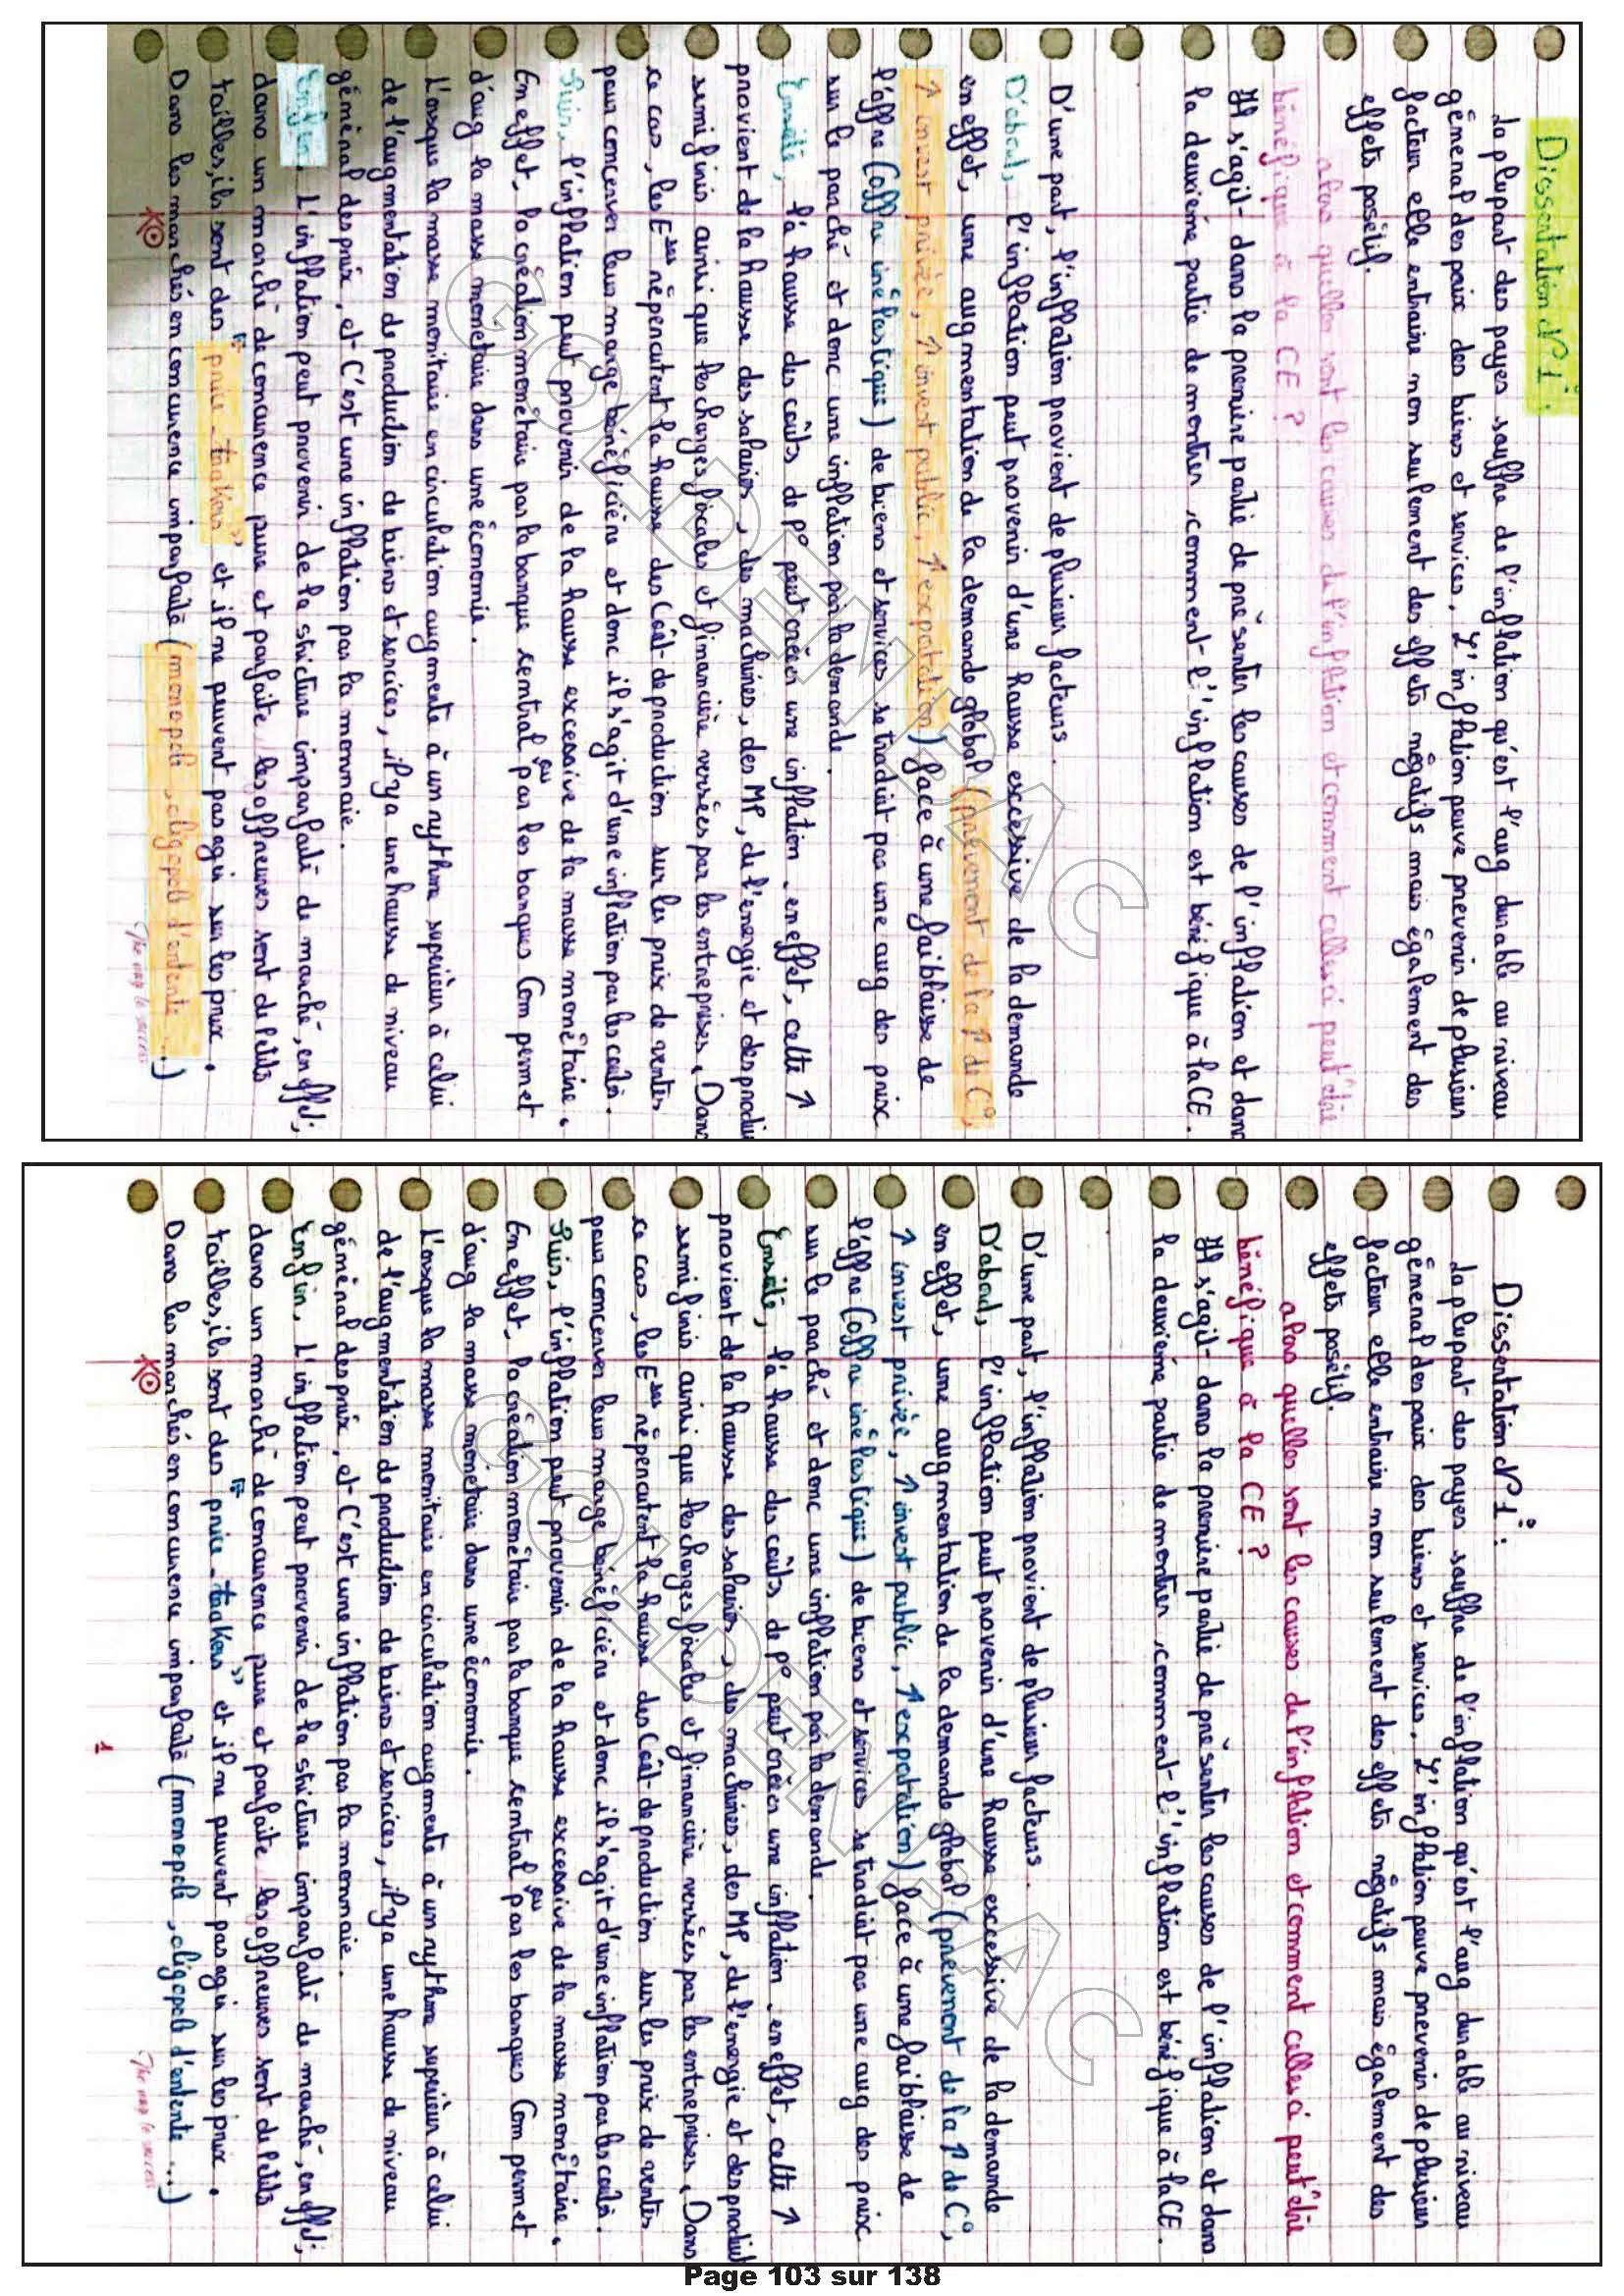 Dissertation N°1:
La plupart des payes souffre de l'inflation qu'est l'aug durable au niveau
général des paix des biens et services, L'inflation peuve prevenir de plusieur
facteur elle entraine non seulement des effets négatifs mais également des
effets posétif.
alors quelles sont les causes de l'infltion et comment celles ci peut'être
bénéfique à la CE ?
Il s'agit dans la première partie de présenter les causes de l'inflation et dans
la deuxiémé partie de montier, comment l'inflation est bénéfique à la CE.
D'une part, l'inflation provient de plusieur facteurs.
D'abord, l'inflation peut provenir d'une hausse excessive de la demande
en effet, une augmentation de la demande global (prévenent de la ↑ de C°,
↑ invest privée, ↑ invest public, ↑ expotation) face à une faiblaisse de
l'offre (offre inélastique) de biens et services se traduit pas une aug des prix
sur le parché et donc une inflation par la demande.
Ensuite, la hausse des coûts de p° peut créer une inflation, en effet, cette ↑
provient de la hausse des salaires, des machines, des MP, de l'energie et des produit
semi finis ainsi que les charges fiscales et financière versées par les entreprises. Dans
ce cas, les Eses répercutent la hausse des Coût de production sur les prix de ventes
pour concerver leur marge bénéficière et donc il s'agit d'une inflation par les coûts.
Puis, l'inflation peut provenir de la hausse excessive de la masse monétaire.
En effet, la création monétaire par la banque sentral ou par les banques Com permet
d'aug la masse monétaire dans une économie.
L'orsque la masse monitaire en circulation augmente à un rythme supérieur à celui
de l'augmentation de production de biens et services, il y a une hausse de niveau
général des prix, et C'est une inflation par la monnaie.
Enfin, L'inflation peut provenir de la stricture imparfaite de marché, en effet,
dans un marché de concurence pure et parfaite les offreuses sont de petits
tailles, ils sont des "price-takers" et il ne peuvent pas agir sur les prix.
Dans les marchés en concurence imparfaite (monopole, oligopole d'entente ...)
The way to success
GOLDEN BAC
Dissertation N°1:
La plupart des payes souffre de l'inflation qu'est l'aug durable au niveau
général des paix des biens et services, L'inflation peuve prevenir de plusieur
facteur elle entraine non seulement des effets négatifs mais également des
effets posétif.
alors quelles sont les causes de l'infltion et comment celles ci peut'être
bénéfique à la CE ?
Il s'agit dans la première partie de présenter les causes de l'inflation et dans
la deuxiémé partie de montier, comment l'inflation est bénéfique à la CE.
D'une part, l'inflation provient de plusieur facteurs.
D'abord, l'inflation peut provenir d'une hausse excessive de la demande
en effet, une augmentation de la demande global (prévenent de la ↑ de C°,
↑ invest privée, ↑ invest public, ↑ expotation) face à une faiblaisse de
l'offre (offre inélastique) de biens et services se traduit pas une aug des prix
sur le parché et donc une inflation par la demande.
Ensuite, la hausse des coûts de p° peut créer une inflation, en effet, cette ↑
provient de la hausse des salaires, des machines, des MP, de l'energie et des produit
semi finis ainsi que les charges fiscales et financière versées par les entreprises. Dans
ce cas, les Eses répercutent la hausse des Coût de production sur les prix de ventes
pour concerver leur marge bénéficière et donc il s'agit d'une inflation par les coûts.
Puis, l'inflation peut provenir de la hausse excessive de la masse monétaire.
En effet, la création monétaire par la banque sentral ou par les banques Com permet
d'aug la masse monétaire dans une économie.
L'orsque la masse monitaire en circulation augmente à un rythme supérieur à celui
de l'augmentation de production de biens et services, il y a une hausse de niveau
général des prix, et C'est une inflation par la monnaie.
Enfin, L'inflation peut provenir de la stricture imparfaite de marché, en effet,
dans un marché de concurence pure et parfaite les offreuses sont de petits
tailles, ils sont des "price-takers" et il ne peuvent pas agir sur les prix.
Dans les marchés en concurence imparfaite (monopole, oligopole d'entente ...)
1
The way to success
GOLDEN BAC
Page 103 sur 138